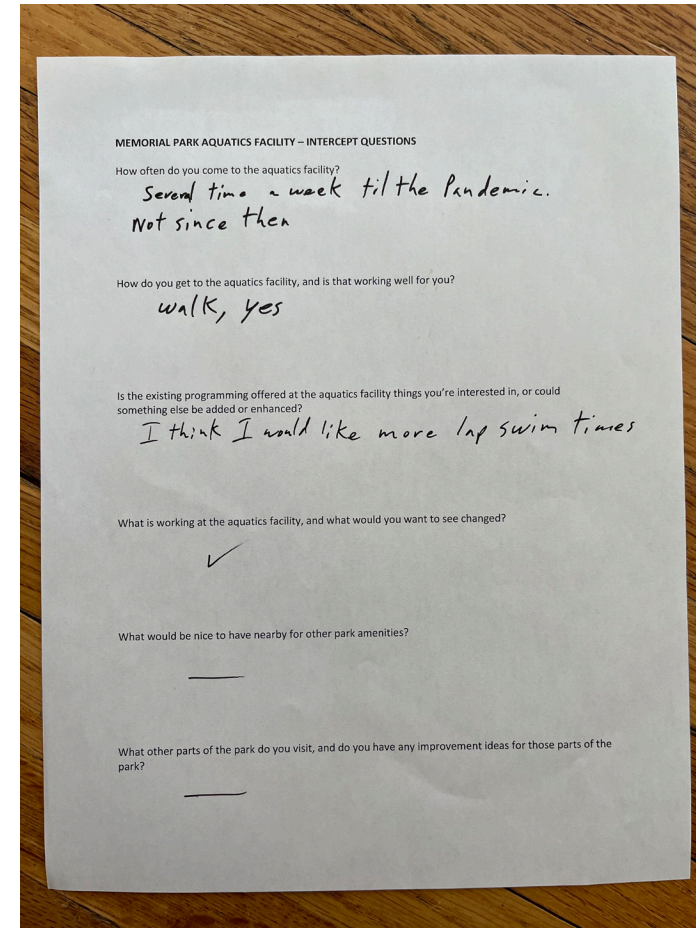 MEMORIAL PARK AQUATICS FACILITY – INTERCEPT QUESTIONS
How often do you come to the aquatics facility?
Several time a week til the Pandemic.
Not since then
How do you get to the aquatics facility, and is that working well for you?
walk, yes
Is the existing programming offered at the aquatics facility things you're interested in, or could
something else be added or enhanced?
I think I would like more lap swim times
What is working at the aquatics facility, and what would you want to see changed?
✓
What would be nice to have nearby for other park amenities?
—
What other parts of the park do you visit, and do you have any improvement ideas for those parts of the
park?
—